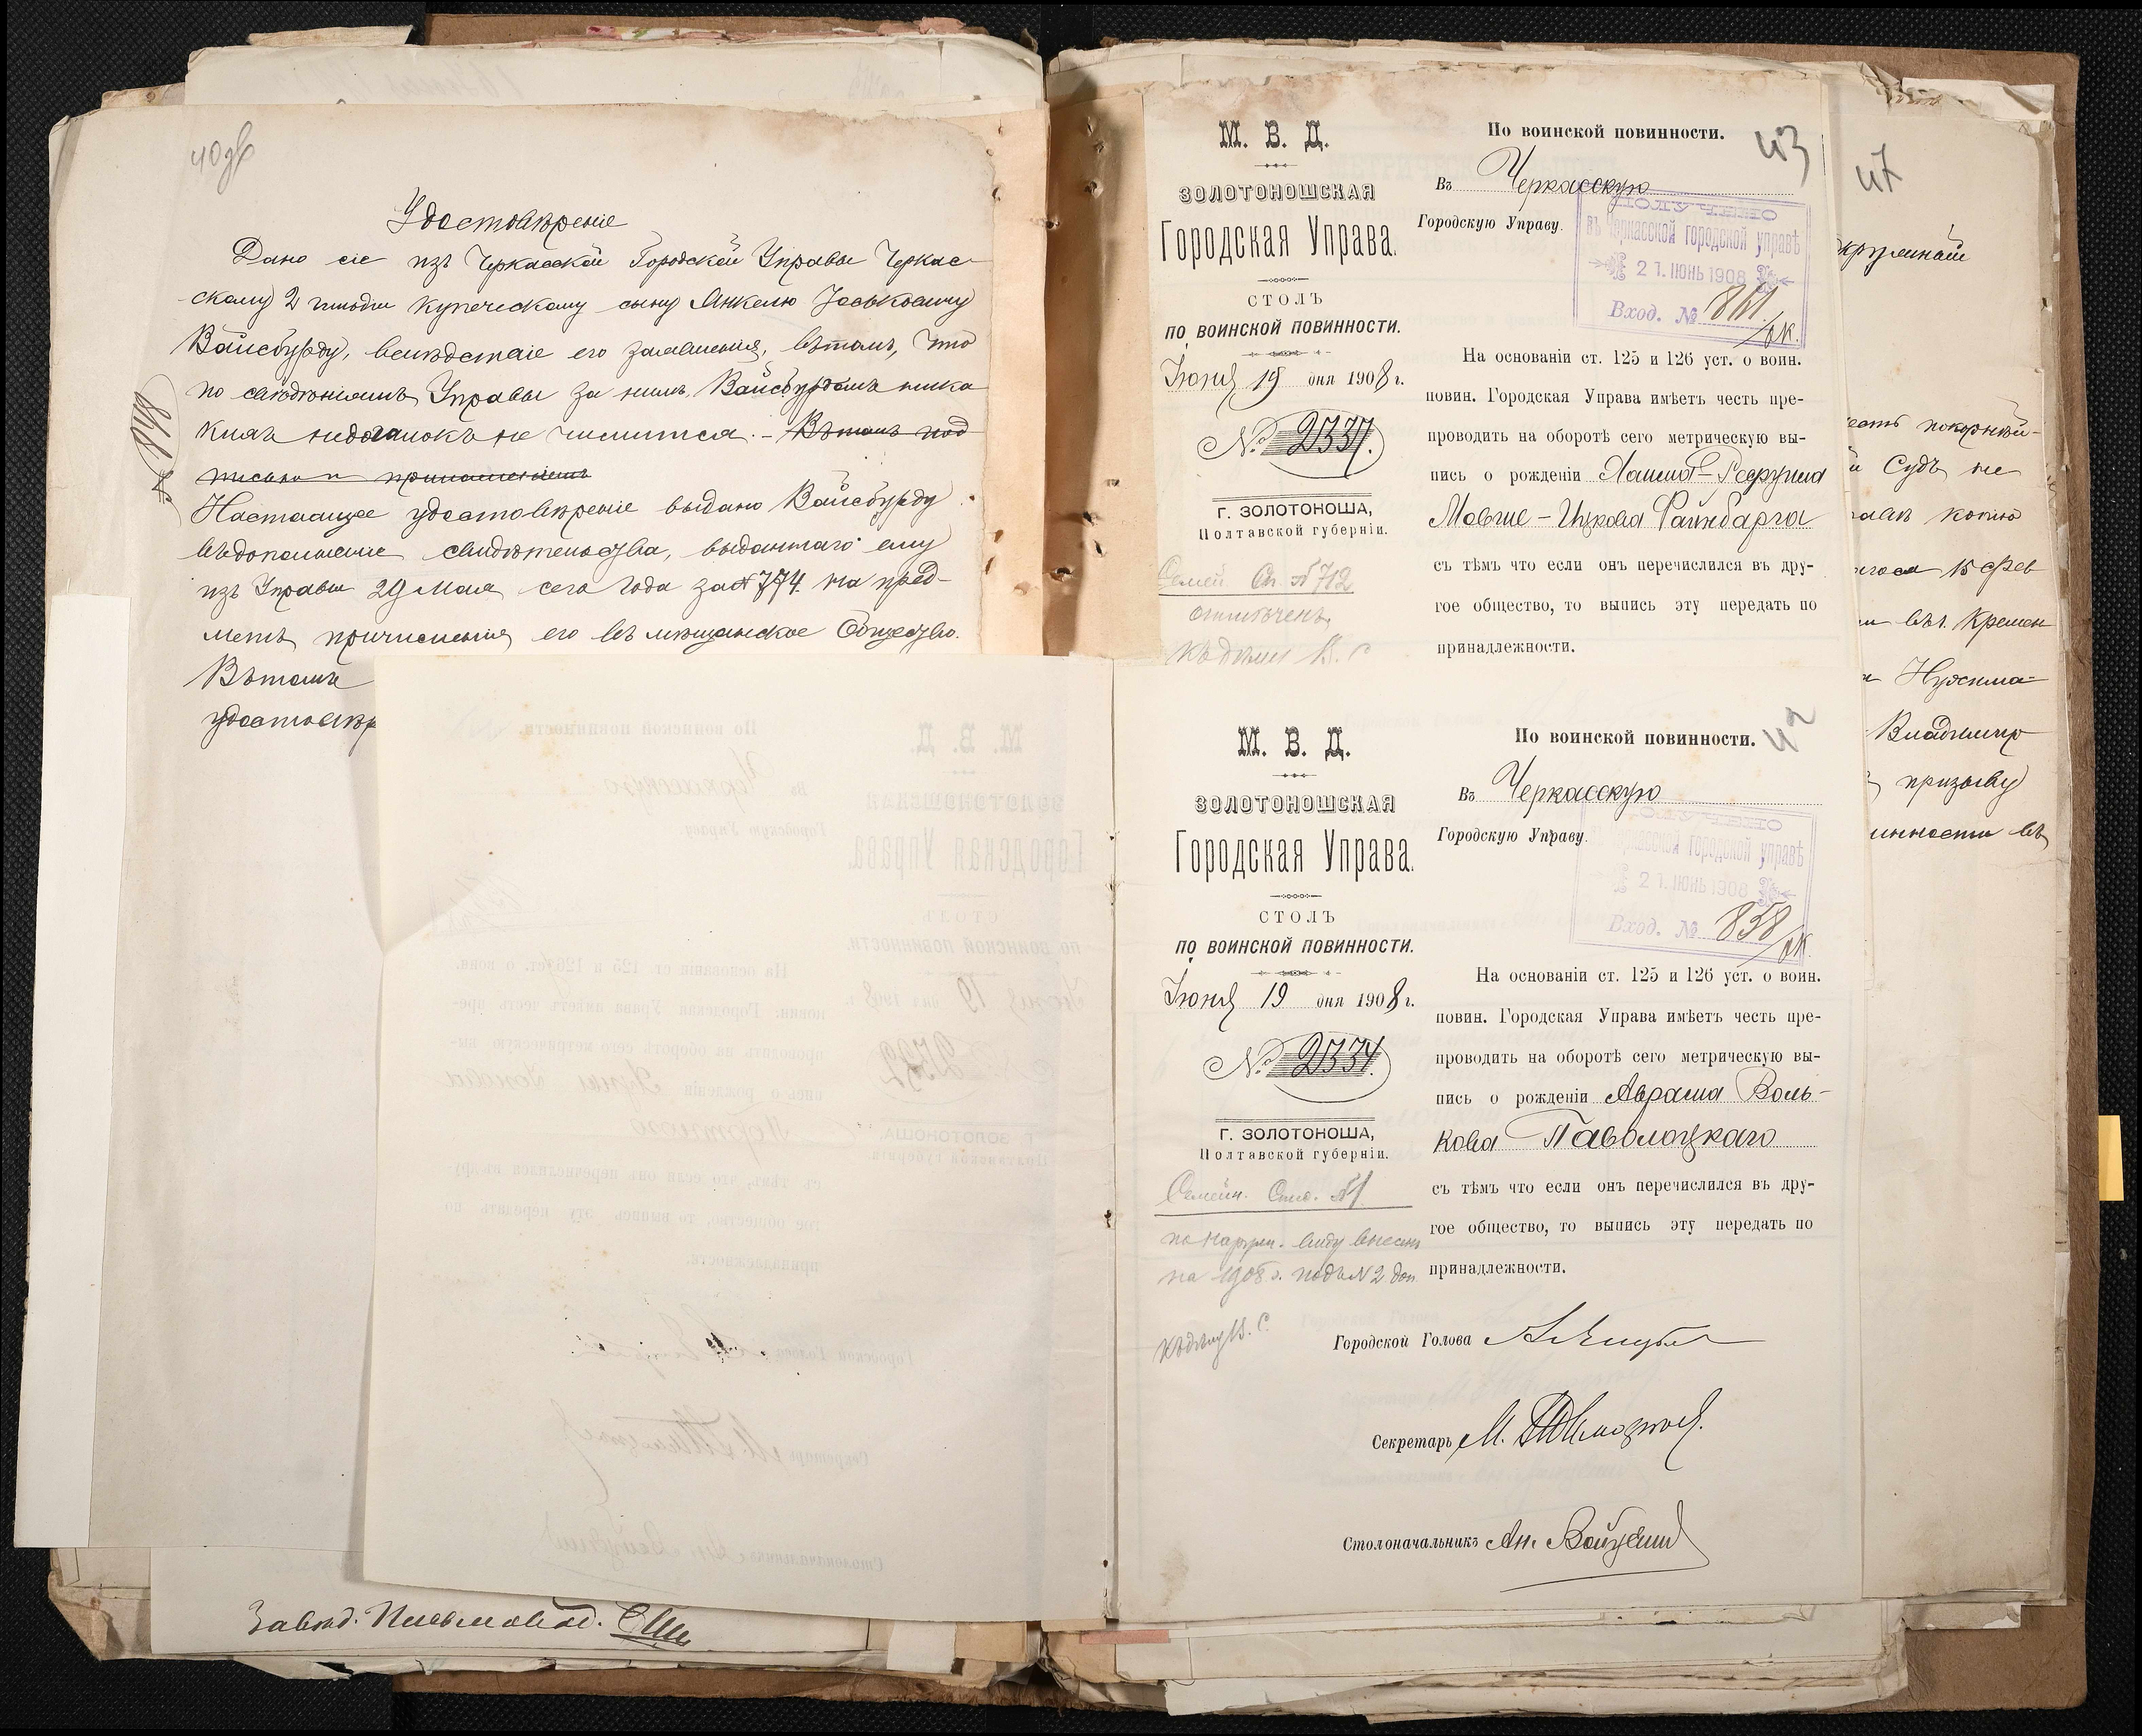 40 об
Удостовѣреніе
Дано сіе изъ Черкасской Городской Управы Черкас-
скому 2 гильдіи купеческому сыну Анкелю Іоськовичу
Вайсбурду, вслѣдствіе его заявленія, въ томъ, что
по свѣдѣніямъ Управы за нимъ, Вайсбурдомъ ника
кихъ недоимокъ не числится. - Въ томъ под-
писью и приложеніемъ
Настоящее удостовѣреніе выдано Вайсбурду
въ дополненіе свидѣтельства, выданнаго ему
изъ Управы 29 Мая сего года за № 774 на пред-
метъ причисленія его въ мѣщанское Общество.
Въ томъ
удостовѣр
Завѣд. Письмовод.
М. В. Д.
ЗОЛОТОНОШСКАЯ
Городская Управа.
СТОЛЪ
ПО ВОИНСКОЙ ПОВИННОСТИ.
Іюня 19 дня 1908 г.
№ 2337.
Г. ЗОЛОТОНОША,
Полтавской губерніи.
Семей. Сп. № 712
отмѣченъ
къ дѣлу В. С
По воинской повинности.
43
Въ Черкасскую
Городскую Управу.
ПОЛУЧЕНО
въ Черкасской городской управѣ
21. ІЮНЬ 1908
Вход. № 861/вк.
На основаніи ст. 125 и 126 уст. о воин.
повин. Городская Управа имѣетъ честь пре-
проводить на оборотѣ сего метрическую вы-
пись о рожденіи Хаима-Рефруима
Мовше-Ицкова Файнбарга
съ тѣмъ что если онъ перечислился въ дру-
гое общество, то выпись эту передать по
принадлежности.
М. В. Д.
ЗОЛОТОНОШСКАЯ
Городская Управа.
СТОЛЪ
ПО ВОИНСКОЙ ПОВИННОСТИ.
Іюня 19 дня 1908 г.
№ 2334.
Г. ЗОЛОТОНОША,
Полтавской губерніи.
Семейн. Спис. №1
по наружн. виду внесенъ
на 1908 г. подъ № 2 доп.
къ дѣлу В. С.
По воинской повинности.
42
Въ Черкасскую
Городскую Управу.
ПОЛУЧЕНО
въ Черкасской городской управѣ
21. ІЮНЬ 1908
Вход. № 858/вк.
На основаніи ст. 125 и 126 уст. о воин.
повин. Городская Управа имѣетъ честь пре-
проводить на оборотѣ сего метрическую вы-
пись о рожденіи Аврама Воль-
кова Паволоцкаго
съ тѣмъ что если онъ перечислился въ дру-
гое общество, то выпись эту передать по
принадлежности.
Городской Голова
Секретарь М.
Столоначальникъ Ан.
47
кружный
есть покорнѣй-
й Судъ не
копію
15 Фев
въ г. Кремен
Нухима-
Владимир
призыву
инности въ